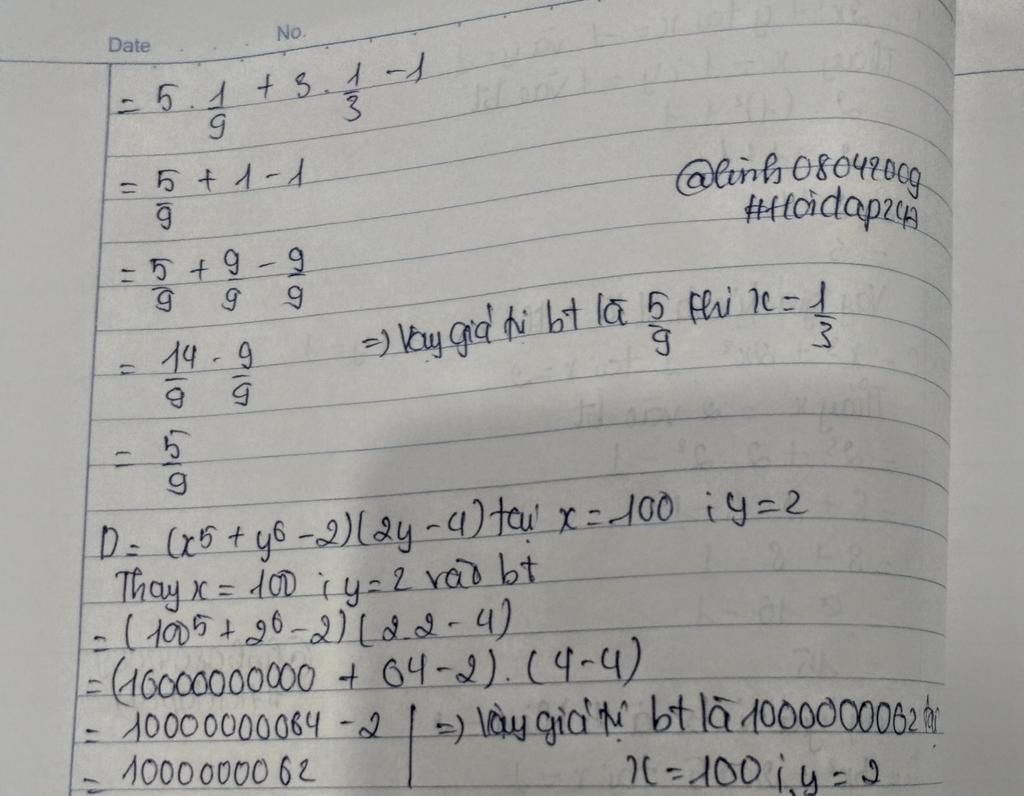 Date No.
= 5 . 1/9 + 3 . 1/3 - 1
= 5/9 + 1 - 1
@linh08042009
#Hoidap247
= 5/9 + 9/9 - 9/9
= 14/9 - 9/9 => Vậy giá trị bt là 5/9 khi x = 1/3
= 5/9
D = (x^5 + y^6 - 2)(2y - 4) tại x = 100 ; y = 2
Thay x = 100 ; y = 2 vào bt
= (100^5 + 2^6 - 2)(2.2 - 4)
= (10000000000 + 64 - 2) . (4 - 4)
= 10000000064 - 2 => Vậy giá trị bt là 1000000062 tại
= 1000000062 x = 100 ; y = 2